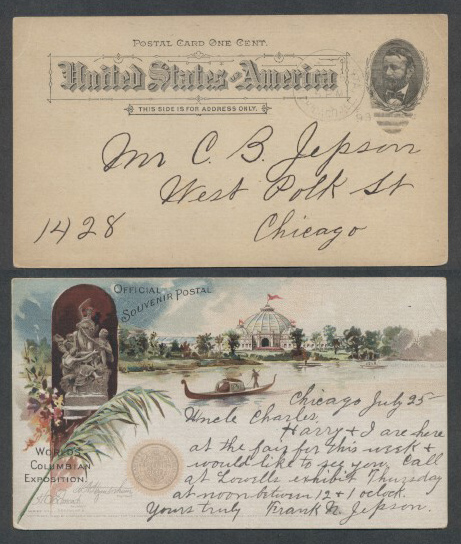 POSTAL CARD ONE CENT.
United States of America
THIS SIDE IS FOR ADDRESS ONLY.
Mr C. B. Jepson
West Polk St
1428
Chicago
OFFICIAL
SOUVENIR POSTAL
WORLD'S
COLUMBIAN
EXPOSITION.
Chicago July 25
Uncle Charles,
Harry & I are here
at the fair for this week &
would like to see you. Call
at Lowells exhibit Thursday
at noon between 12 & 1 oclock.
Yours truly Frank N. Jepson.